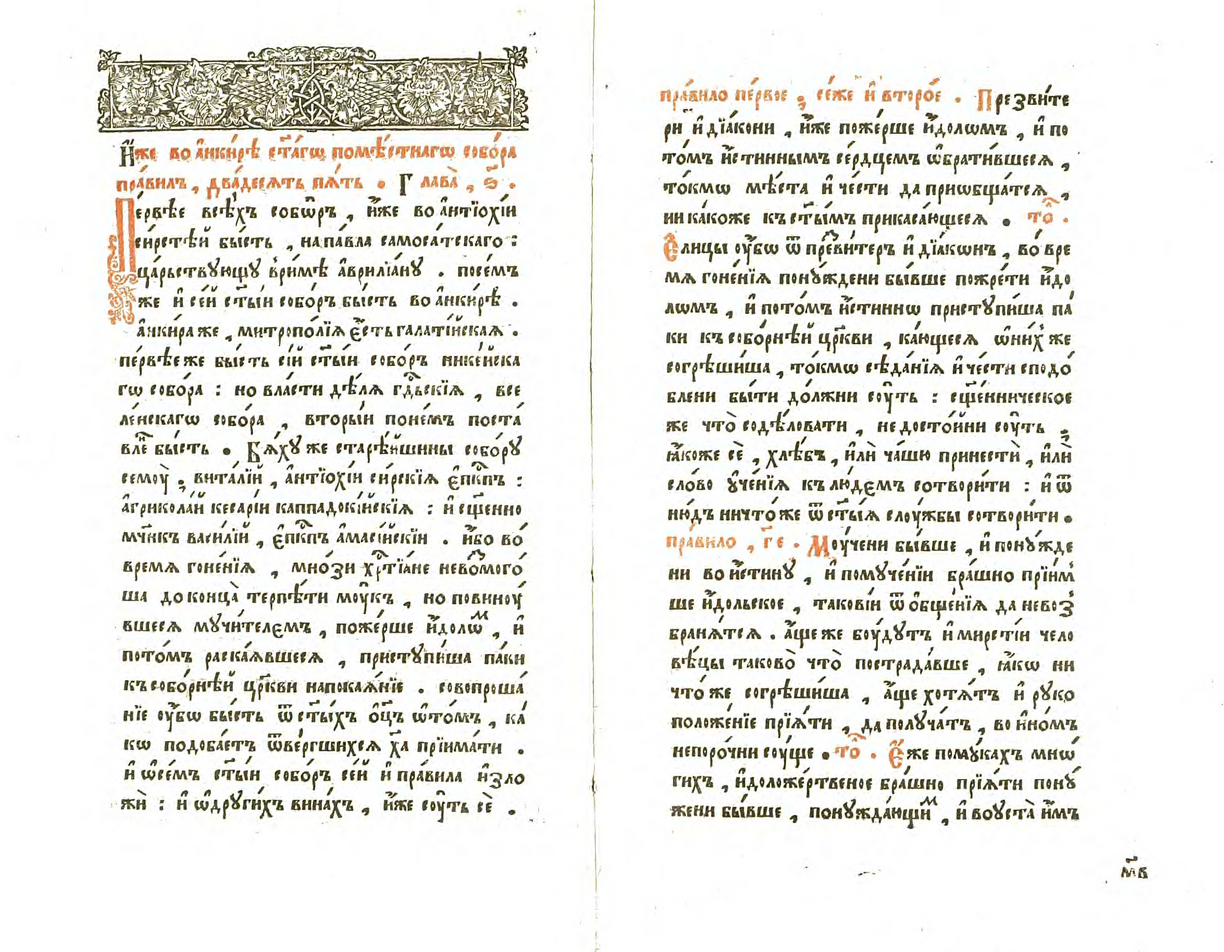 И҆́же во а҆нки́рѣ ст҃а́гѡ помѣ́стнагѡ собо́ра
пра́вилъ , два́десѧть пѧ́ть . Глава̀ , ѕ҃ .
Пе́рвѣе всѣ́хъ собѡ́ръ , и҆́же во а҆нтїохі́и
си́рстѣй бы́сть , на па́вла самоса́тскаго :
ца́рьствующу в ри́мѣ а҆вриліа́ну . посе́мъ
же и҆ се́й ст҃ы́и собо́ръ бы́сть во а҆нки́рѣ .
а҆нки́ра же , митропо́лїѧ є҆́сть гала́тійскаѧ .
пе́рвѣе же бы́сть сі́й ст҃ы́и собо́ръ нике́йска
гѡ собо́ра : но вла́сти дѣ́лѧ гд҇ьскїѧ , все
ле́нскагѡ собо́ра , вторы́и поне́мъ поста́
вле҇ бы́сть . Бѧ́ху же старѣ́йшины собо́ру
семоу̀ , вита́лій , а҆нтїохі́и си́рскїѧ є҆пкⷭ҇пъ :
а҆гри́колай кесарі́и каппадокі́йскїѧ : и҆ сщ҃е́нно
мч҃нкъ васи́лій , є҆пкⷭ҇пъ а҆масі́йскїи . и҆́бо во́
времѧ гоне́нїѧ , мно́зи хрⷭ҇тїѧ́не невⷪ҇змого́
ша до конца̀ терпѣ́ти моу́къ , но повиноу́
вшеесѧ мучи́телємъ , поже́рше и҆́долѡⷨ , и҆
пото́мъ раска́ѧвшеесѧ , приступи́ша па́ки
къ собо́рнѣй цр҃кви на пока́ѧнїе . совопроша́
нїе оу҆́бѡ бы́сть ѿ ст҃ы́хъ ѻ҆ц҃ъ ѡ҆ то́мъ , ка́
кѡ подоба́етъ ѿве́ргшихсѧ хр҃а прїима́ти .
и҆ ѡ҆се́мъ ст҃ы́и собо́ръ се́й и҆ пра́вила и҆зло
жѝ : и҆ ѡ҆ други́хъ вина́хъ , и҆́же соу́ть сѐ .
пра́вило пе́рвое , се́же и҆ второ́е . Презви́те
ри и҆ дїа́кони , и҆́же поже́рше и҆́долѡмъ , и҆ по
то́мъ и҆́стиннымъ се́рдцемъ ѡ҆брати́вшеесѧ ,
то́кмѡ мѣ́ста и҆ че́сти да прио́бщатсѧ ,
ни ка́коже къ ст҃ы́мъ прикаса́ющеесѧ . то́ⷧ .
Є҆ли́цы оу҆́бѡ ѿ пре́звитеръ и҆ дїа́кѡнъ , во́ вре
мѧ гоне́нїѧ пону́ждени бы́вше пожре́ти и҆́до
лѡмъ , и҆ пото́мъ и҆́стиннѡ приступи́ша па́
ки къ собо́рнѣй цр҃кви , ка́ющеесѧ ѡ҆ ни́хже
согрѣши́ша , то́кмѡ сѣда́нїѧ и҆ че́сти сподо́
блени бы́ти до́лжни соу́ть : сщ҃е́нническое
же что̀ содѣ́ловати , недосто́йни соу́ть ,
ꙗ҆́коже сѐ , хлѣ́бъ , и҆лѝ ча́шю принестѝ , и҆лѝ
сло́во у҆че́нїѧ къ лю́демъ сотвори́ти : и҆ ѿ
ню́дъ ничто́же ѿ ст҃ы́ѧ слоу́жбы сотвори́ти .
пра́вило , г҃е . Моу́чени бы́вше , и҆ пону́жде
ни во и҆́стину , и҆ по муче́нїи бра́шно прїи́м
ше и҆́дольское , такові́и ѿ о҆бще́нїѧ да не воз̾
бранѧ́тсѧ . а҆́ще же бу́дутъ и҆ мирсті́и чело
вѣ́цы таково̀ что̀ пострада́вше , ꙗ҆́кѡ ни
что́же согрѣши́ша , а҆́ще хотѧ́тъ и҆ руко
положе́нїе прїѧ́ти , да полу́чатъ , во и҆но́мъ
непоро́чни соу́ще . то́ⷧ . Є҆́же по му́кахъ мнѡ́
гихъ , и҆доложе́ртвеное бра́шно прїѧ́ти пону́
жени бы́вше , понужда́ющиⷨ , и҆ во оу҆ста̀ и҆́мъ
м҃в